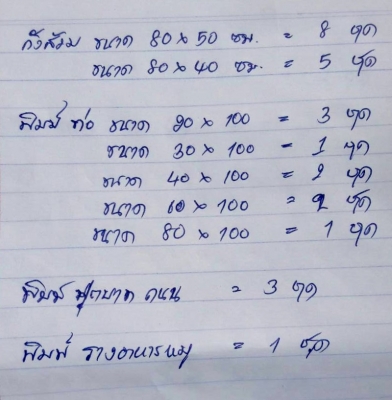 ถังส้วม ขนาด 80 x 50 ซม. = 8 ชุด
ขนาด 80 x 40 ซม. = 5 ชุด
พิมพ์ ท่อ ขนาด 20 x 100 = 3 ชุด
ขนาด 30 x 100 = 1 ชุด
ขนาด 40 x 100 = 2 ชุด
ขนาด 60 x 100 = 2 ชุด
ขนาด 80 x 100 = 1 ชุด
พิมพ์ ฟุตบาท ถนน = 3 ชุด
พิมพ์ รางอาหารหมู = 1 ชุด